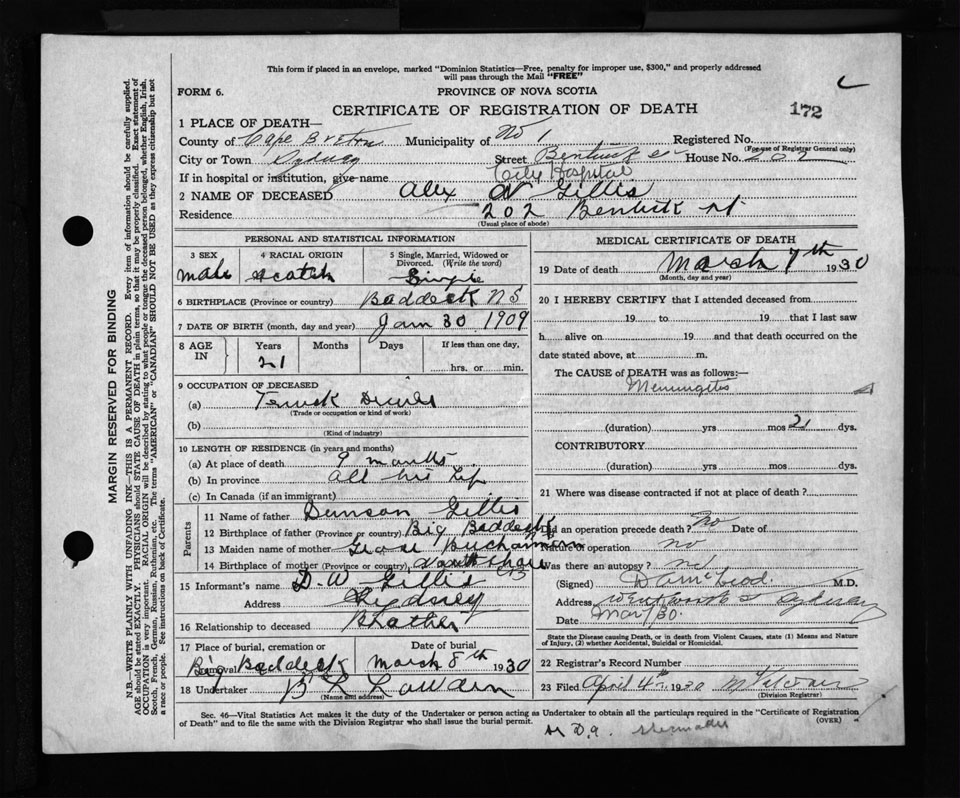 This form if placed in an envelope, marked "Dominion Statistics—Free, penalty for improper use, $300," and properly addressed
will pass through the Mail "FREE"
FORM 6.
PROVINCE OF NOVA SCOTIA
CERTIFICATE OF REGISTRATION OF DEATH
172
1 PLACE OF DEATH—
County of Cape Breton Municipality of No 1 Registered No.
(For use of Registrar General only)
City or Town Sydney Street House No. 202
If in hospital or institution, give name City Hospital
2 NAME OF DECEASED Alex N Gillis
Residence 202 Bentick st
(Usual place of abode)
PERSONAL AND STATISTICAL INFORMATION
3 SEX 4 RACIAL ORIGIN 5 Single, Married, Widowed or
Divorced. (Write the word)
male Scotch Single
6 BIRTHPLACE (Province or country) Baddeck NS
7 DATE OF BIRTH (month, day and year) Jan 30 1909
8 AGE IN Years Months Days If less than one day,
21 hrs. or min.
9 OCCUPATION OF DECEASED
(a) Truck
(Trade or occupation or kind of work)
(b)
(Kind of industry)
10 LENGTH OF RESIDENCE (in years and months)
(a) At place of death 9 months
(b) In province all his life
(c) In Canada (if an immigrant)
Parents
11 Name of father Duncan Gillis
12 Birthplace of father (Province or country) Big Baddeck
13 Maiden name of mother Buchanan
14 Birthplace of mother (Province or country) North Shore CB
15 Informant's name D. W Gillis
Address Sydney
16 Relationship to deceased Brother
17 Place of burial, cremation or Removal Date of burial
Big Baddeck March 8th 1930
18 Undertaker
(Name and address)
MEDICAL CERTIFICATE OF DEATH
19 Date of death March 7th 1930
(Month, day and year)
20 I HEREBY CERTIFY that I attended deceased from
19 to 19 that I last saw
h alive on 19 and that death occurred on the
date stated above, at m.
The CAUSE of DEATH was as follows:—
Meningitis
(duration) yrs mos 21 dys.
CONTRIBUTORY
(duration) yrs mos dys.
21 Where was disease contracted if not at place of death?
Did an operation precede death? No Date of
Nature of operation no
Was there an autopsy? no
(Signed) McLeod. M.D.
Address Wentworth St Sydney
Date Mar 7/30.
State the Disease causing Death, or in death from Violent Causes, state (1) Means and Nature
of Injury, (2) whether Accidental, Suicidal or Homicidal.
22 Registrar's Record Number
23 Filed April 4th 1930
(Division Registrar)
Sec. 46—Vital Statistics Act makes it the duty of the Undertaker or person acting as Undertaker to obtain all the particulars required in the "Certificate of Registration
of Death" and to file the same with the Division Registrar who shall issue the burial permit.
(OVER)
MARGIN RESERVED FOR BINDING
N.B.—WRITE PLAINLY WITH UNFADING INK—THIS IS A PERMANENT RECORD. Every item of information should be carefully supplied.
AGE should be stated EXACTLY. PHYSICIANS should STATE CAUSE OF DEATH in plain terms, so that it may be properly classified. Exact statement of
OCCUPATION is very important. RACIAL ORIGIN will be described by stating to what people or tongue the deceased person belonged, whether English, Irish,
Scotch, French, German, Russian, Ruthenian, etc. The terms "AMERICAN" or "CANADIAN" SHOULD NOT BE USED as they express citizenship but not
a race or people. See instructions on back of Certificate.